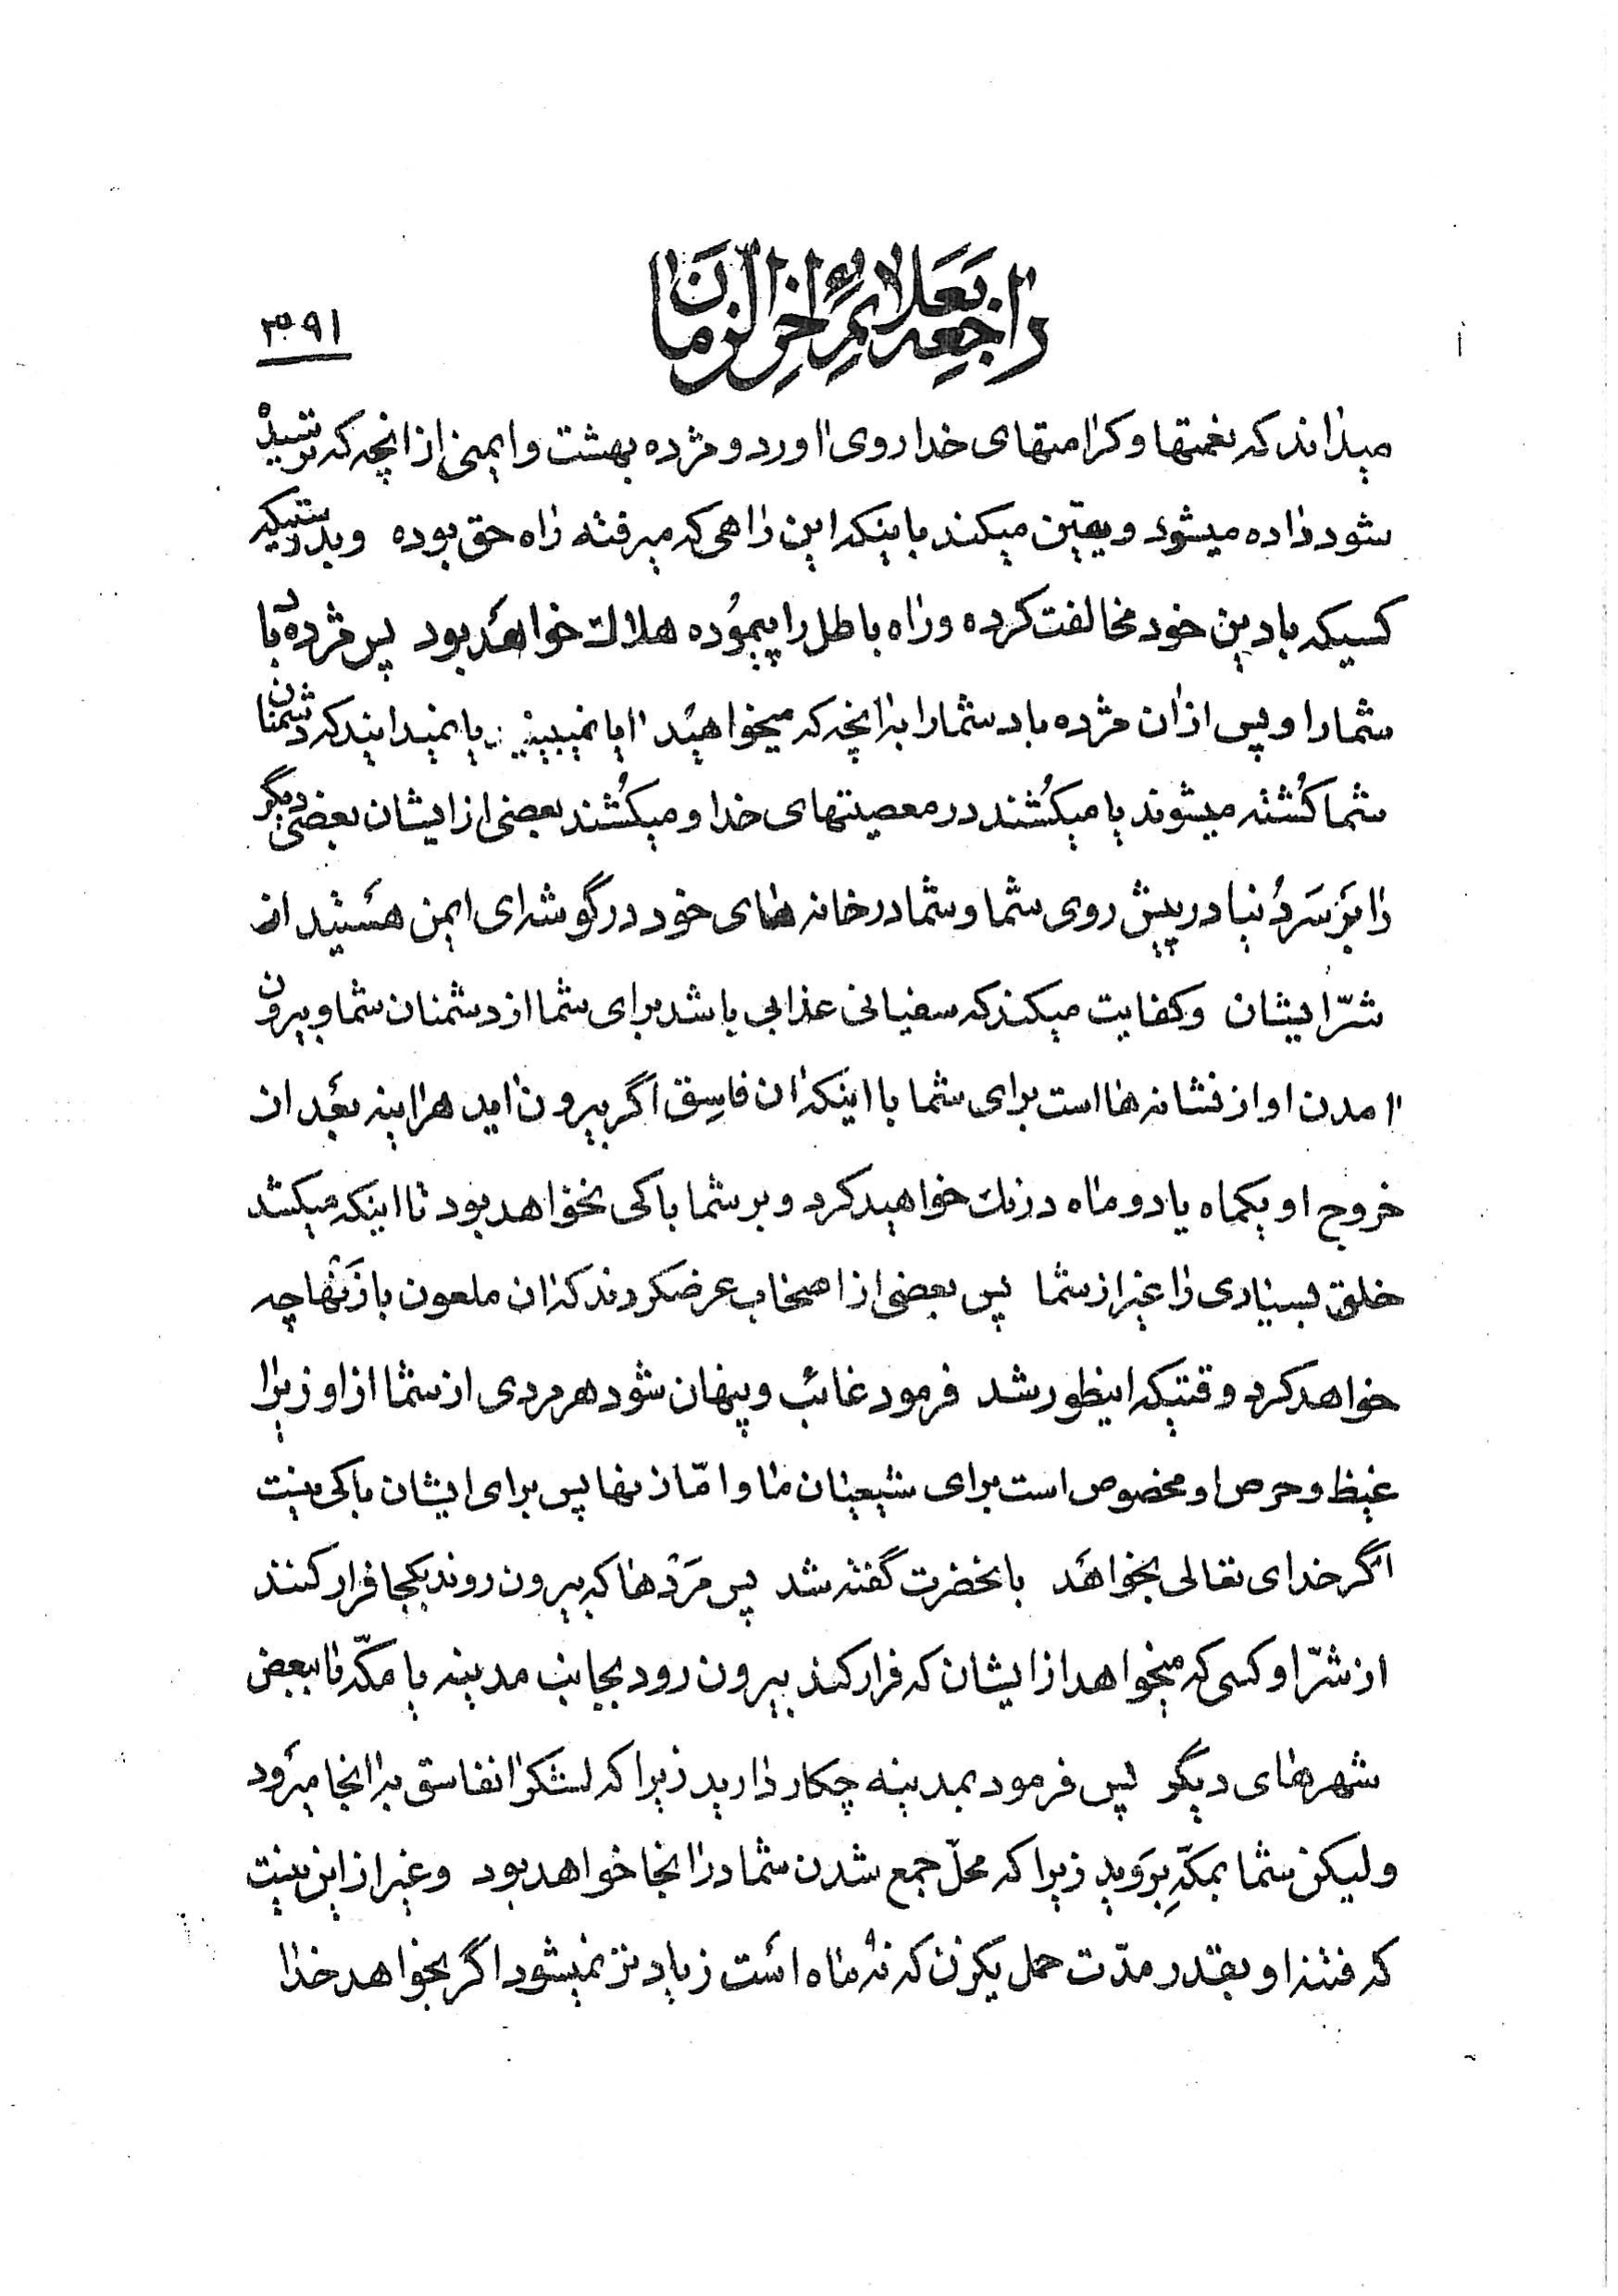 راجعه بعلائم آخر الزمان
۳۹۱
میداند که نعمتها و کرامتهای خدا روی آورد و مژده بهشت و ایمنی از آنچه که ترسید
شود داده میشود و یقین میکند باینکه این راهی که میرفته راه حق بوده و بدرستیکه
کسیکه بادین خود مخالفت کرده و راه باطل را پیموده هلاک خواهد بود پس مژده باد
شما را و پس از ان مژده باد شما را بآنچه که میخواهید آیا نمیبینید یا نمیدانید که دشمنان
شما کشته میشوند یا میکُشند در معصیتهای خدا و میکُشند بعضی از ایشان بعضی دیگر
را بر سَر دُنیا در پیش روی شما و شما در خانه های خود در گوشه‌ای ایمن هستید از
شرّ ایشان و کفایت میکند که سفیانی عذابی باشد برای شما از دشمنان شما و بیرون
آمدن او از نشانه ها است برای شما با اینکه آن فاسِق اگر بیرون آید هرآینه بعد از
خروج او یکماه یا دو ماه درنك خواهید کرد و بر شما باکی نخواهد بود تا اینکه میکشد
خلق بسیاری را غیر از شما پس بعضی از اصحاب عرضکردند که آن ملعون با زَنها چه
خواهد کرد وقتیکه اینطور شد فرمود غائب و پنهان شود هر مردی از شما از او زیرا
غیظ و حرص او مخصوص است برای شیعیان ما و امّا زنها پس برای ایشان باکی نیست
اگر خدای تعالی بخواهد بانحضرت گفته شد پس مَردها که بیرون روند بکجا فرار کنند
از شرّ او کسی که میخواهد از ایشان که فرار کند بیرون رود بجانب مدینه یا مکّه تا ببعض
شهرهای دیگر پس فرمود بمدینه چکار دارید زیرا که لشکر آنفاسق بآنجا میرود
ولیکن شما بمکّه بِرَوید زیرا که محلّ جمع شدن شما در آنجا خواهد بود و غیر از این نیست
که فتنه او بقدر مدّت حمل یکزن که نُه ماه است زیادتر نمیشود اگر بخواهد خدا